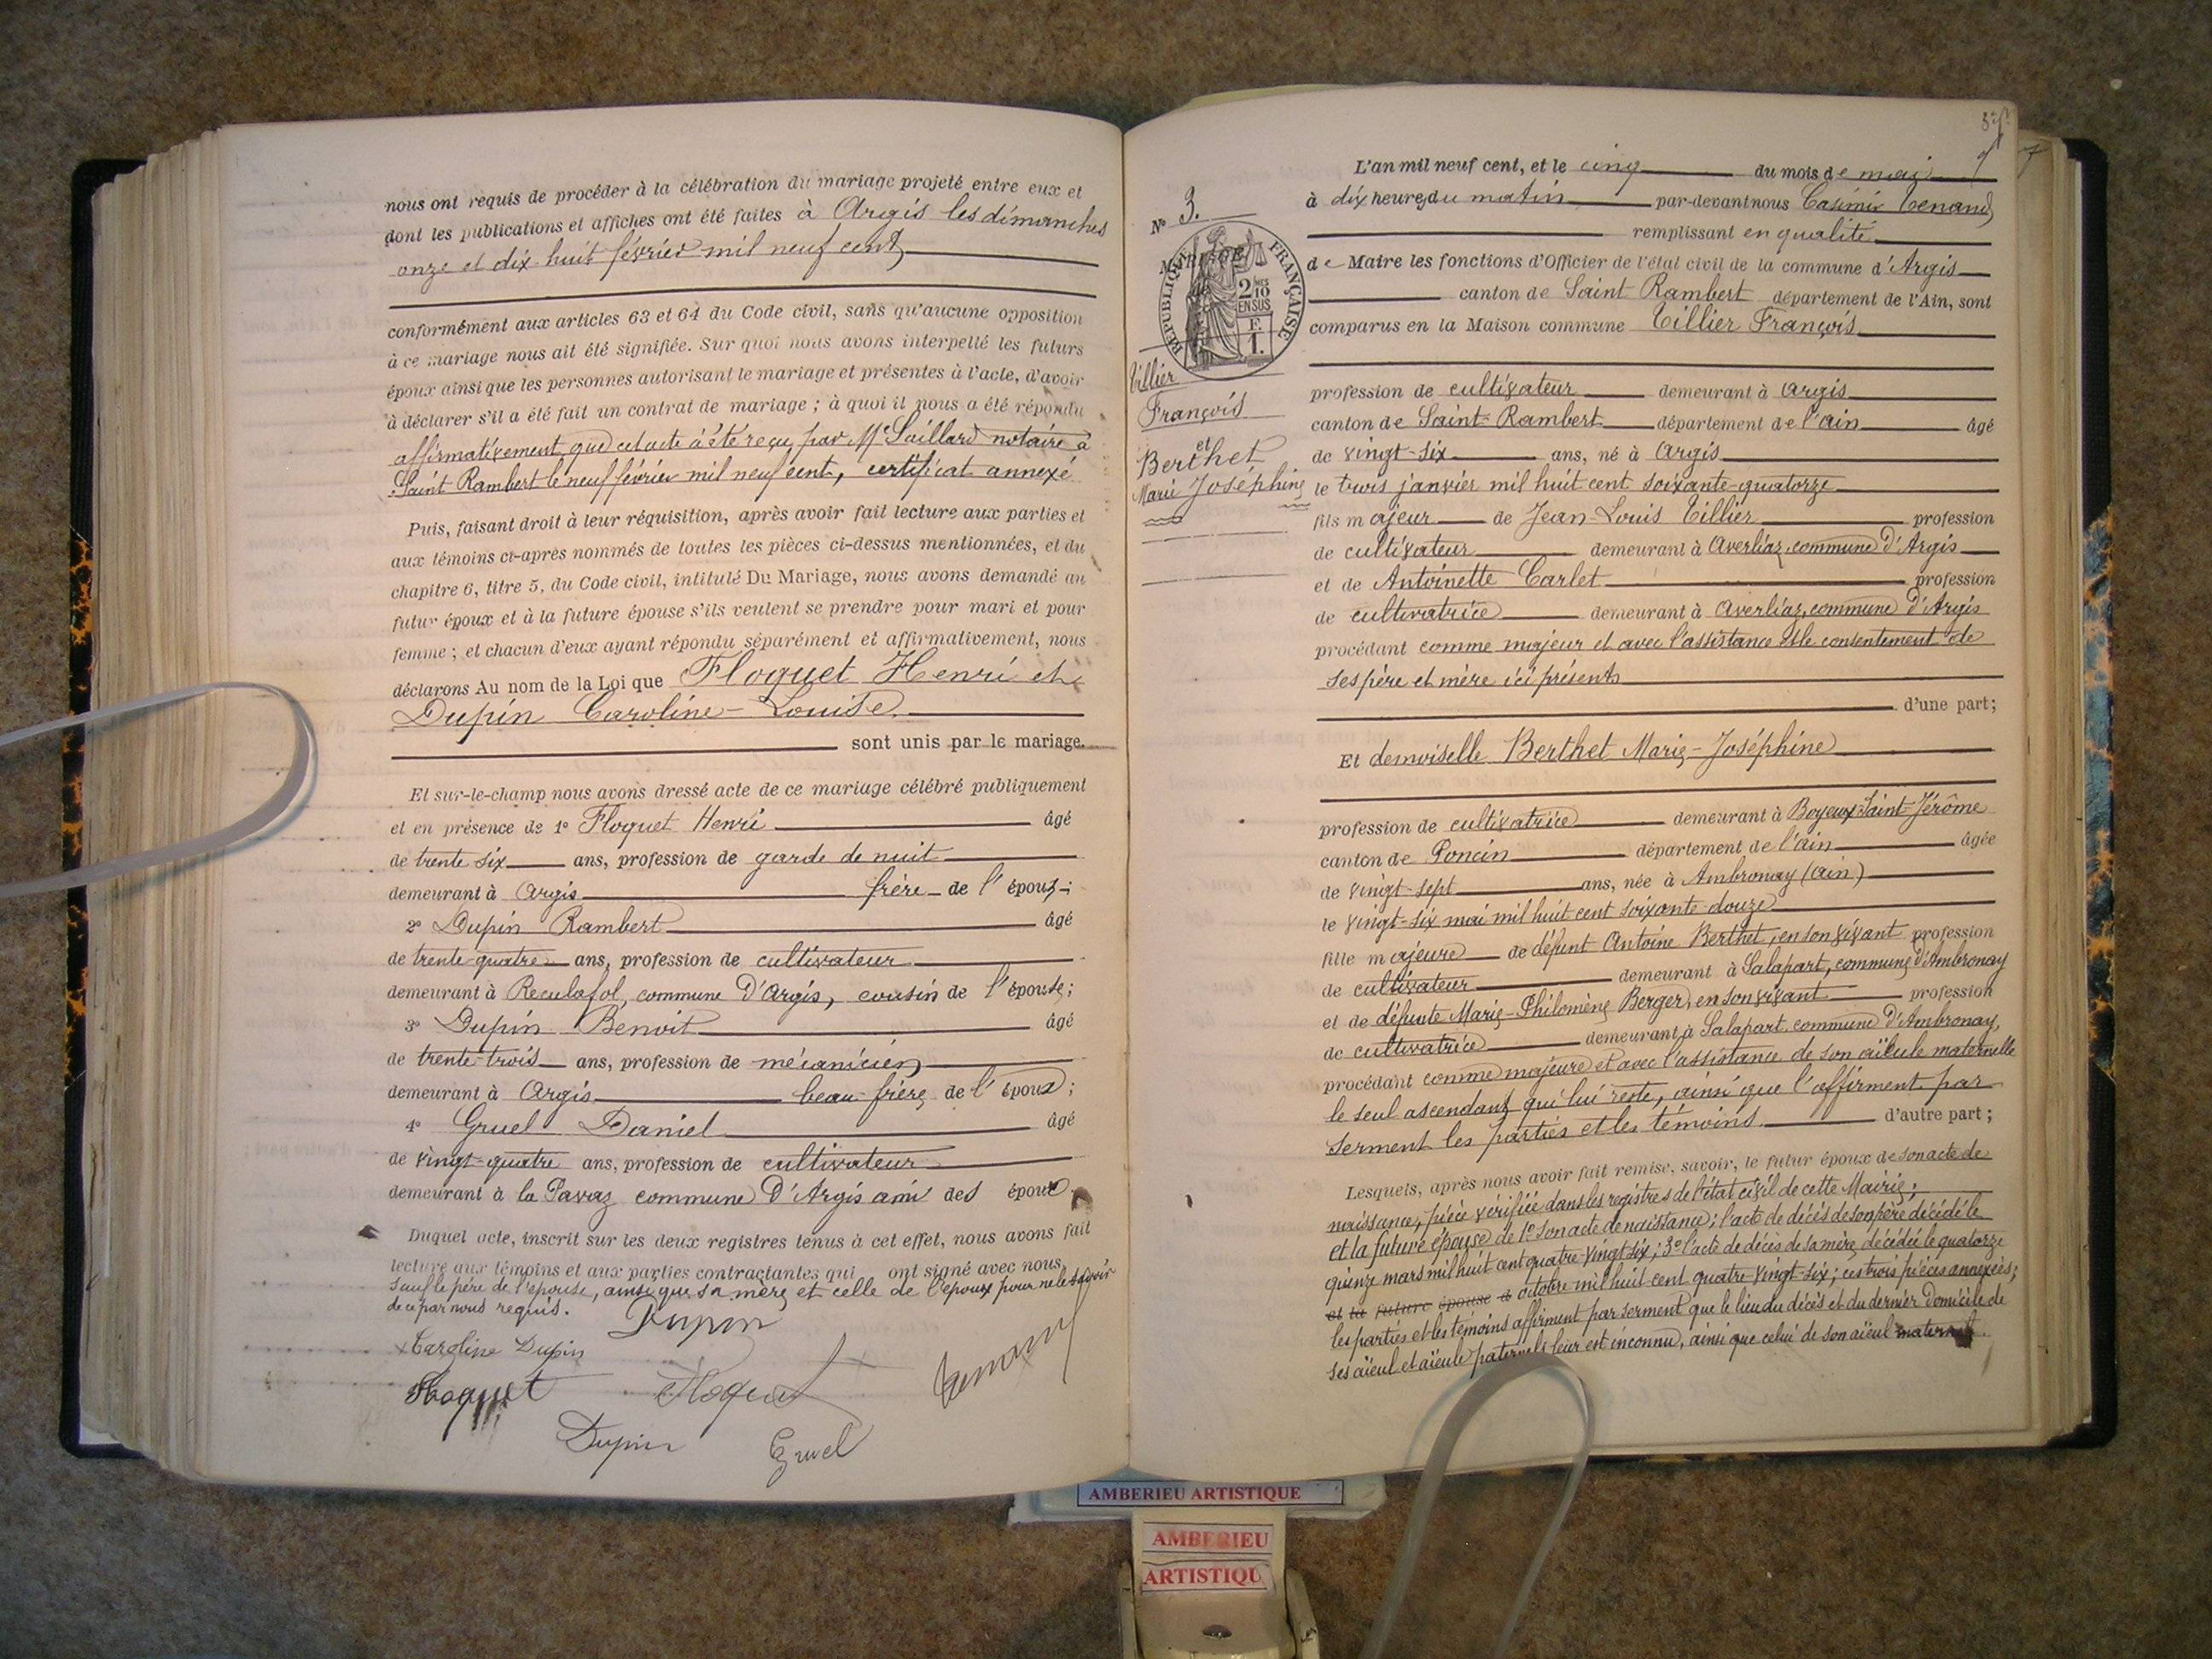 nous ont requis de procéder à la célébration du mariage projeté entre eux et
dont les publications et affiches ont été faites à Argis les dimanches
onze et dix-huit février mil neuf cent
conformément aux articles 63 et 64 du Code civil, sans qu'aucune opposition
à ce mariage nous ait été signifiée. Sur quoi nous avons interpellé les futurs
époux ainsi que les personnes autorisant le mariage et présentes à l'acte, d'avoir
à déclarer s'il a été fait un contrat de mariage ; à quoi il nous a été répondu
affirmativement que cet acte a été reçu par Me Saillard notaire à
Saint Rambert le neuf février mil neuf cent, certificat annexé
Puis, faisant droit à leur réquisition, après avoir fait lecture aux parties et
aux témoins ci-après nommés de toutes les pièces ci-dessus mentionnées, et du
chapitre 6, titre 5, du Code civil, intitulé Du Mariage, nous avons demandé au
futur époux et à la future épouse s'ils veulent se prendre pour mari et pour
femme ; et chacun d'eux ayant répondu séparément et affirmativement, nous
déclarons Au nom de la Loi que Floquet Henri et
Dupin Caroline-Louise
sont unis par le mariage.
Et sur-le-champ nous avons dressé acte de ce mariage célébré publiquement
et en présence de 1° Floquet Henri âgé
de trente six ans, profession de garde de nuit
demeurant à Argis frère de l'époux ;
2° Dupin Rambert âgé
de trente-quatre ans, profession de cultivateur
demeurant à Reculafol, commune D'Argis, cousin de l'épouse ;
3° Dupin Benoit âgé
de trente-trois ans, profession de mécanicien
demeurant à Argis beau-frère de l'époux ;
4° Gruel Daniel âgé
de vingt-quatre ans, profession de cultivateur
demeurant à la Pavaz commune D'Argis ami des époux
Duquel acte, inscrit sur les deux registres tenus à cet effet, nous avons fait
lecture aux témoins et aux parties contractantes qui ont signé avec nous
sauf le père de l'épouse, ainsi que sa mère et celle de l'époux pour ne le savoir
de ce par nous requis.
Dupin
Caroline Dupin
Floquet Floquet Tenand
Dupin Gruel
L'an mil neuf cent, et le cinq du mois de mai
à dix heures du matin par-devant nous Casimir Tenand
remplissant en qualité
de Maire les fonctions d'Officier de l'état civil de la commune d'Argis
canton de Saint Rambert département de l'Ain, sont
comparus en la Maison commune Tillier François
profession de cultivateur demeurant à Argis
canton de Saint-Rambert département de l'ain âgé
de vingt-six ans, né à Argis
le trois janvier mil huit cent soixante-quatorze
fils majeur de Jean-Louis Tillier profession
de cultivateur demeurant à Averliaz, commune D'Argis
et de Antoinette Carlet profession
de cultivatrice demeurant à Averliaz, commune D'Argis
procédant comme majeur et avec l'assistance et le consentement de
ses père et mère ici présents
d'une part ;
Et demoiselle Berthet Marie-Joséphine
profession de cultivatrice demeurant à Boyeux-Saint-Jérôme
canton de Poncin département de l'ain âgée
de vingt-sept ans, née à Ambronay (ain)
le vingt-six mai mil huit cent soixante-douze
fille majeure de défunt Antoine Berthet, en son vivant profession
de cultivateur demeurant à Salapart, commune d'Ambronay
et de défunte Marie-Philomène Berger, en son vivant profession
de cultivatrice demeurant à Salapart, commune D'Ambronay,
procédant comme majeure et avec l'assistance de son aïeule maternelle
le seul ascendant qui lui reste, ainsi que l'affirment par
serment les parties et les témoins d'autre part ;
Lesquels, après nous avoir fait remise, savoir, le futur époux de son acte de
naissance, pièce vérifiée dans les registres de l'état civil de cette Mairie ;
et la future épouse de 1° son acte de naissance ; l'acte de décès de son père décédé le
quinze mars mil huit cent quatre-vingt-six ; 3° l'acte de décès de sa mère, décédée le quatorze
et la future épouse a octobre mil huit cent quatre-vingt-six ; ces trois pièces annexées ;
les parties et les témoins affirment par serment que le lieu du décès et du dernier domicile de
ses aïeul et aïeule paternels leur est inconnu, ainsi que celui de son aïeul maternel.
N° 3.
MARIAGE
RÉPUBLIQUE FRANÇAISE
2/10 EN SUS
F.
1.
Tillier
François
et
Berthet
Marie Joséphine
AMBERIEU ARTISTIQUE
AMBERIEU
ARTISTIQU